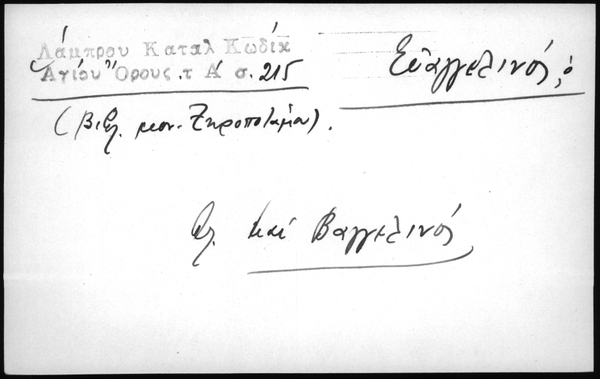 Λάμπρου Καταλ Κωδίκ
Ἁγίου Ὄρους τ. Α΄ σ. 215
Εὐαγγελινός, ὁ
(Βιβλ. μον. Ξηροποτάμου).
βλ. καί Βαγγελινός